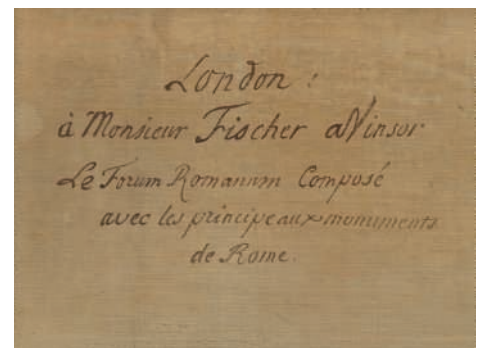 London :
à Monsieur Fischer a Vinsor
Le Forum Romanum Composé
avec les principeaux monuments
de Rome.